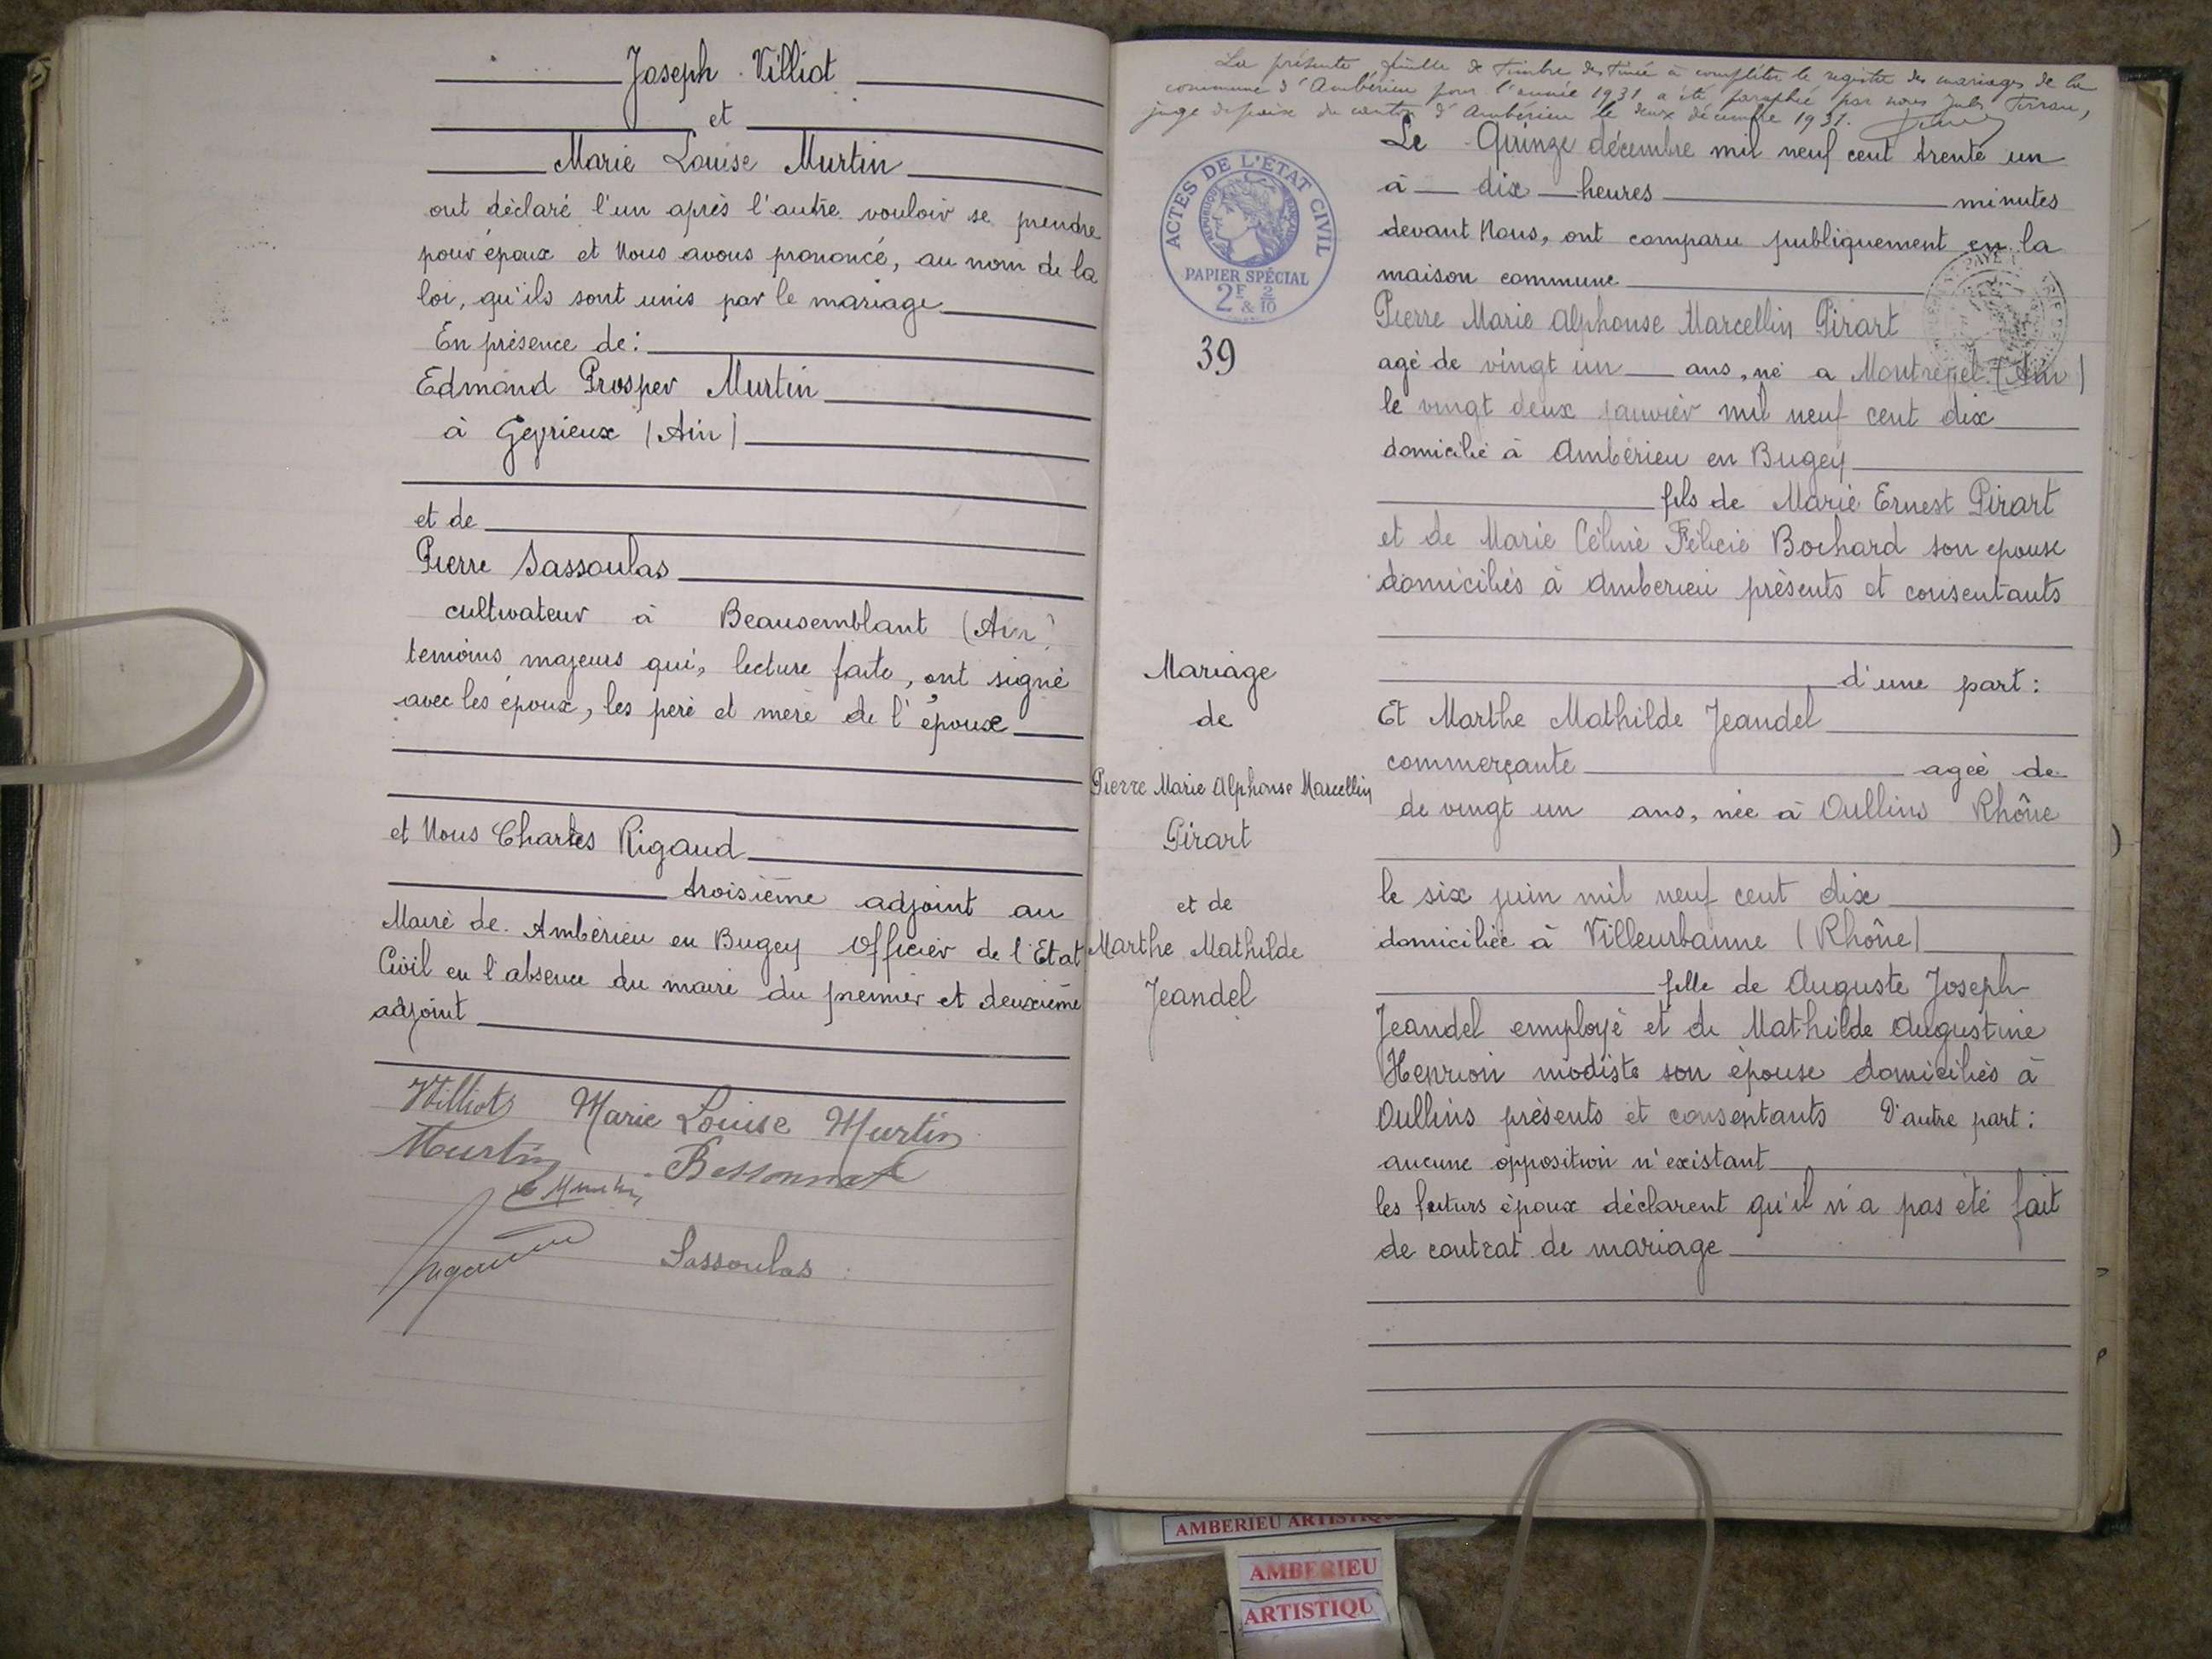 Joseph Villiot
et
Marie Louise Murtin
ont déclaré l'un après l'autre vouloir se prendre
pour époux et Nous avons prononcé, au nom de la
loi, qu'ils sont unis par le mariage
En présence de:
Edmond Prosper Murtin
à (Ain)
et de
Pierre Sassoulas
cultivateur à Beausemblant (Ain)
temoins majeurs qui, lecture faite, ont signé
avec les époux, les père et mère de l'épouse
et Nous Charles Rigaud
troisième adjoint au
Maire de Ambérieu en Bugey Officier de l'Etat
Civil en l'absence du maire du premier et deuxième
adjoint
Villiot Marie Louise Murtin
Murtin Bessonnat
Sassoulas
La présente feuille de timbre destinée à compléter le registre des mariages de la
commune d'Ambérieu pour l'année 1931 a été paraphée par nous
juge de paix du canton d'Ambérieu le deux décembre 1931.
ACTES DE L'ÉTAT CIVIL
RÉPUBLIQUE FRANÇAISE
PAPIER SPÉCIAL
2F & 2/10
39
Mariage
de
Pierre Marie Alphonse Marcellin
Pirart
et de
Marthe Mathilde
Jeandel
Le Quinze décembre mil neuf cent trente un
à dix heures minutes
devant Nous, ont comparu publiquement en la
maison commune
Pierre Marie Alphonse Marcellin Pirart
agé de vingt un ans, né a (Ain)
le vingt deux janvier mil neuf cent dix
domicilié à Ambérieu en Bugey
fils de Marie Ernest Pirart
et de Marie Céline Félicie Bochard son epouse
domiciliés à Amberieu présents et consentants
d'une part:
Et Marthe Mathilde Jeandel
commerçante agée de
de vingt un ans, née à Oullins Rhône
le six juin mil neuf cent dix
domiciliée à Villeurbanne (Rhône)
fille de Auguste Joseph
Jeandel employé et de Mathilde Augustine
Henrion modiste son épouse domiciliés à
Oullins présents et consentants D'autre part:
aucune opposition n'existant
les futurs époux déclarent qu'il n'a pas été fait
de contrat de mariage
AMBERIEU ARTISTIQ
AMBERIEU
ARTISTIQU